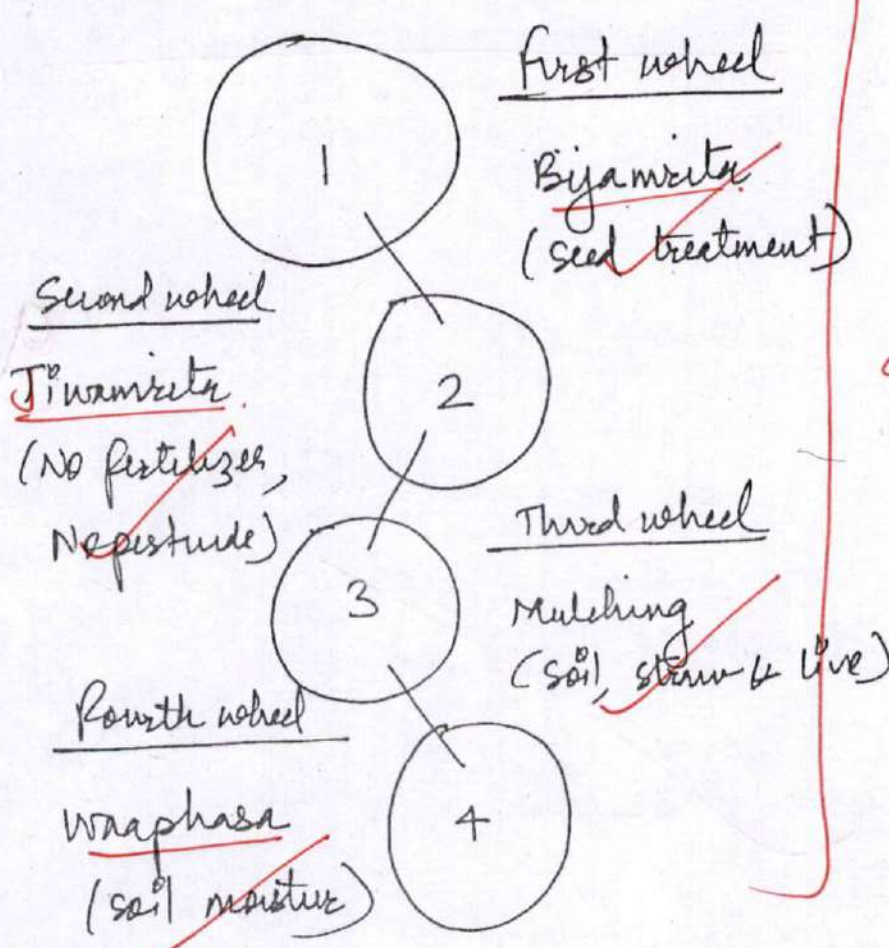 First wheel
1
Bijamrita
(seed treatment)
Second wheel
Jiwamrita
2
(No fertilizer,
No pesticide)
Third wheel
3
Mulching
(soil, straw & live)
Fourth wheel
4
Waaphasa
(soil moistur)